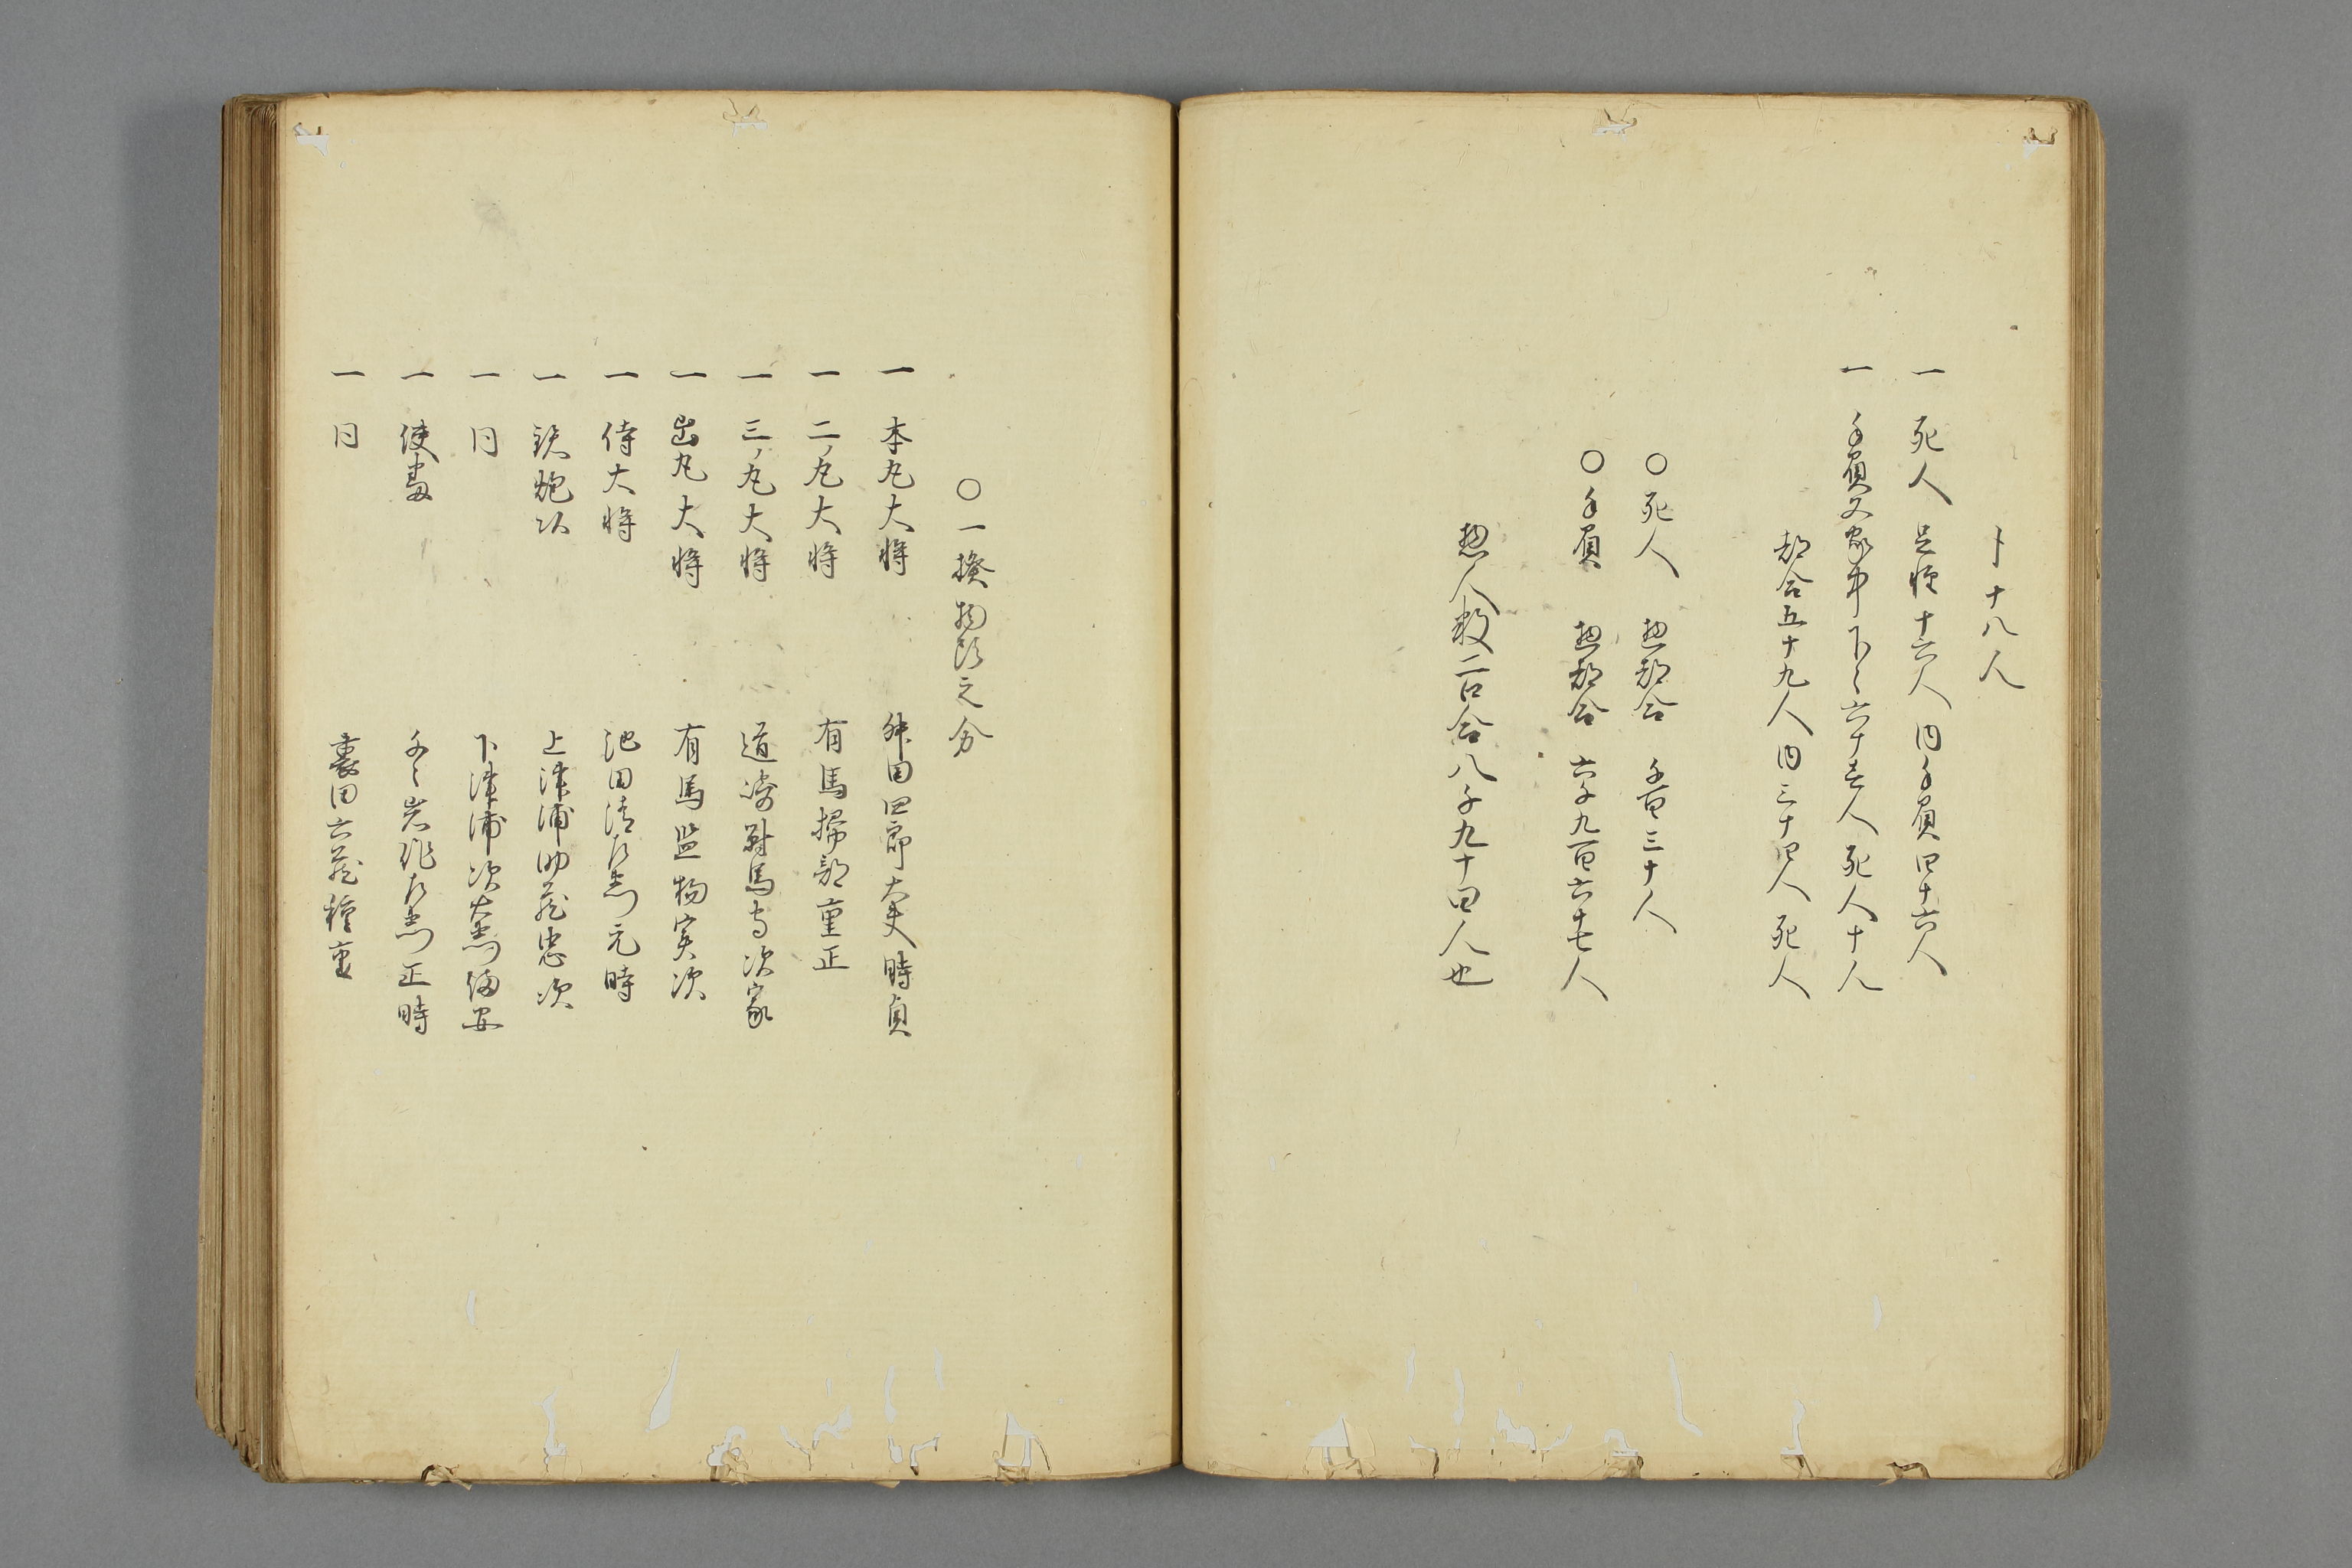 〆十八人
一 死人 足軽十六人 内手負四十六人
一 手負又家中下々六十壱人 死人十人
都合五十九人 内三十四人 死人
○死人 惣都合 千百三十人
○手負 惣都合 六千九百六十七人
惣人数二口合八千九十四人也
○一揆物頭之分
一 本丸大将 舛田四郎太夫時貞
一 二ノ丸大将 有馬掃部重正
一 三ノ丸大将 道崎対馬守次家
一 出丸大将 有馬監物実次
一 侍大将 池田清左衛門元時
一 鉄炮頭 上津浦助蔵忠次
一 同 下津浦次太兵衛
一 使番 千々岩作左衛門正時
一 同 田六蔵種重